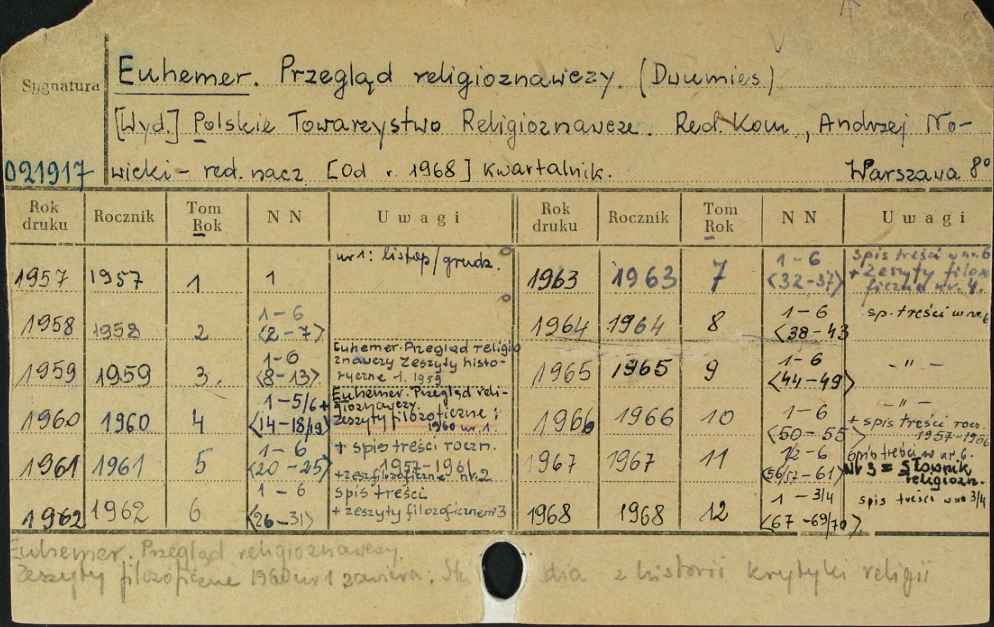 Sygnatura
Euhemer. Przegląd religioznawczy. (Dwumies)
[Wyd.] Polskie Towarzystwo Religioznawcze. Red. Kom, Andrzej No-
021917 wicki – red. nacz. [Od r. 1968] kwartalnik. Warszawa 8°
Rok druku Rocznik Tom Rok NN Uwagi Rok druku Rocznik Tom Rok NN Uwagi
1957 1957 1 1 nr 1: listop/grudz.
1958 1958 2 1–6 <2–7>
1959 1959 3. 1–6 <8–13> Euhemer. Przegląd religio znawczy Zeszyty histo- ryczne 1. 1959
1960 1960 4 1–5/6+ <14–18/19> Euhemer. Przegląd reli- gioznawczy. Zeszyty filozoficzne: 1960 nr. 1.
1961 1961 5 1–6 <20–25> + spis treści roczn. 1957–1961 + zesz. filozoficzne nr. 2
1962 1962 6 1–6 <26–31> spis treści + zeszyty filozoficzne nr 3
1963 1963 7 1–6 <32–37> spis treści w nr. 6 + Zeszyty filozo ficzne nr. 4.
1964 1964 8 1–6 <38–43 sp. treści w nr. 6
1965 1965 9 1–6 <44–49> –"–
1966 1966 10 1–6 <50–55> –"– + spis treści rocz. 1957–1966
1967 1967 11 12–6 <56/57–61> spis treści w nr 6. Nr 3 = Słownik religiozn.
1968 1968 12 1–3/4 <67–69/70> spis treści w nr 3/4
Euhemer. Przegląd religioznawczy.
Zeszyty filozoficzne 1960 nr 1 zawiera: dia z historii krytyki religii